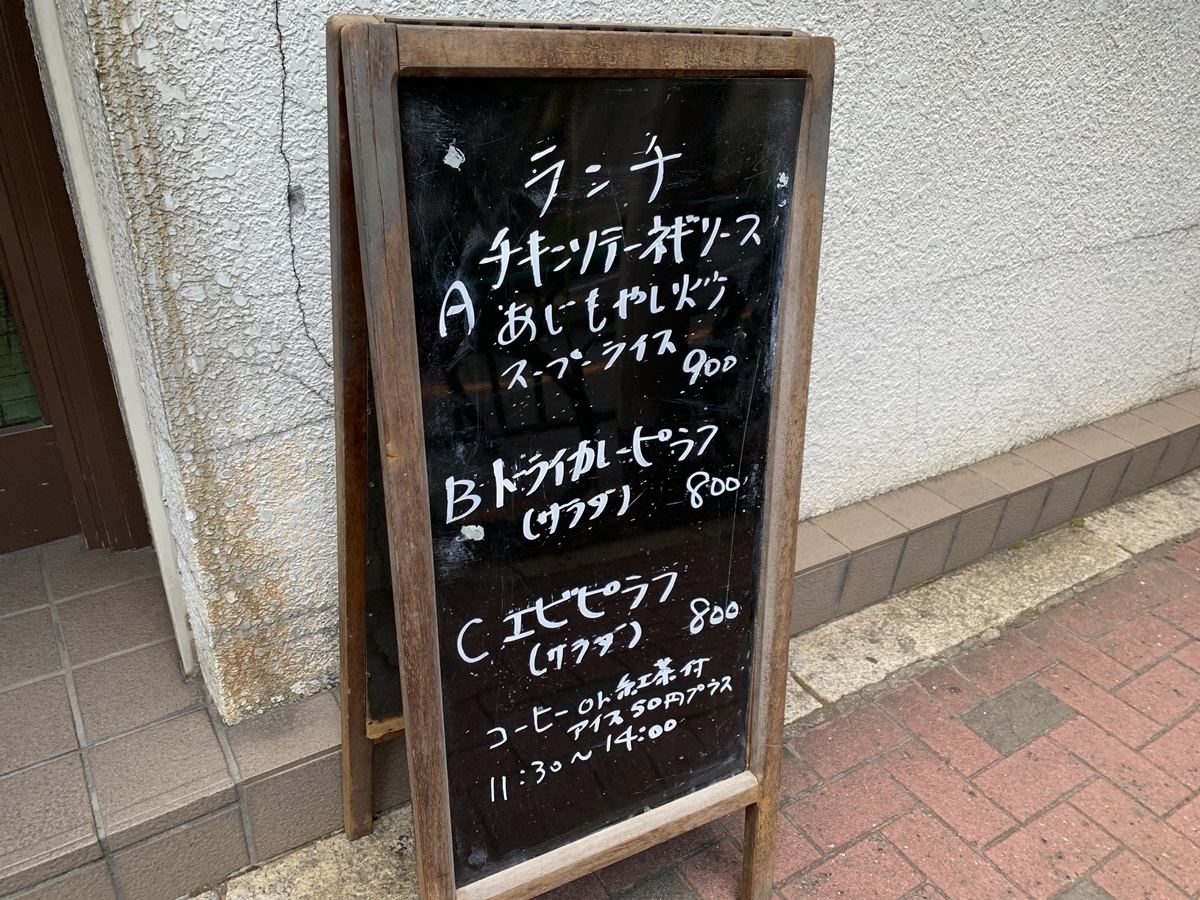 ランチ
A チキンソテーネギソース
あじもやしパン
スープライス 900
B ドライカレーピラフ
(サラダ) 800
C エビピラフ
(サラダ) 800
コーヒー or 紅茶付
アイス50円プラス
11:30〜14:00